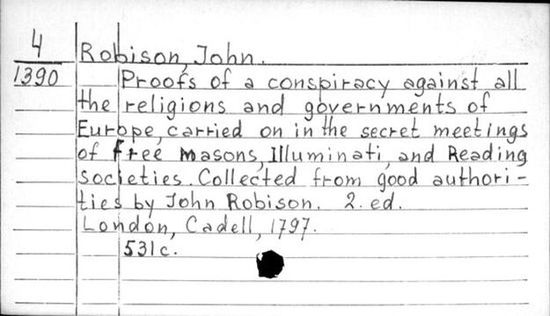 4
1390
Robison, John.
Proofs of a conspiracy against all
the religions and governments of
Europe, carried on in the secret meetings
of free masons, Illuminati, and Reading
societies. Collected from good authori-
ties by John Robison. 2. ed.
London, Cadell, 1797.
531c.